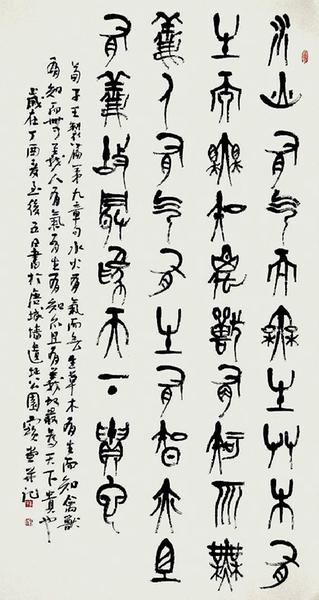 水火有气而無生艸木有
生而無知禽獸有知而無
義人有气有生有智亦且
有義故最為天下貴也
荀子王製篇第九章句水火有氣而無生草木有生而知禽獸
有知而無義人有氣有生有知亦且有義故最為天下貴也
歲在丁酉夏至後五日書於唐城墻遺址公園并記